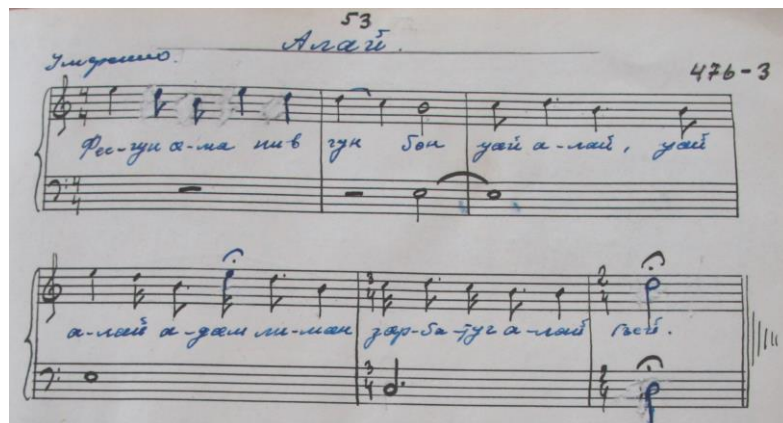 53
Алай.
Умеренно.
476-3
4 4
Фес-гун а-ма пив гун бон уай а-лай, уай
4 4
3 4 2 4
а-лай а-дам ли-ман зар-ба-туг а-лай гъей.
3 4 2 4